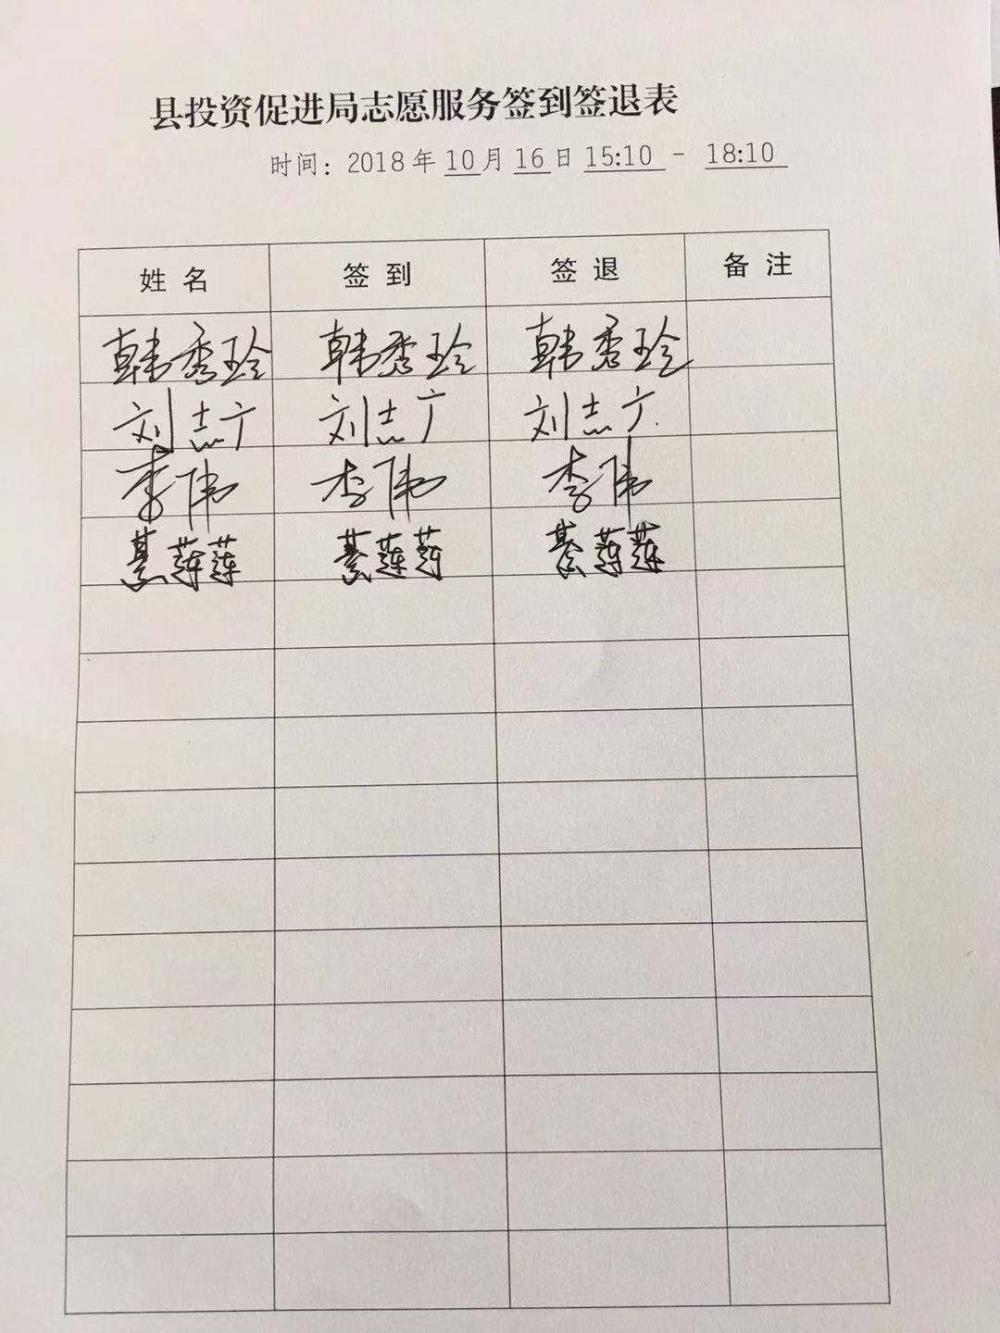 县投资促进局志愿服务签到签退表
时间：2018年10月16日15:10 - 18:10
姓名 签到 签退 备注
韩秀玲 韩秀玲 韩秀玲
刘志广 刘志广 刘志广
李伟 李伟 李伟
綦莲莲 綦莲莲 綦莲莲